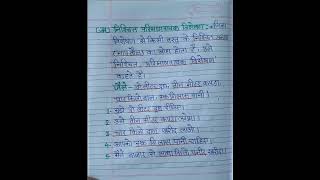 (अ) निश्चित परिमाणवाचक विशेषण :- जिस
विशेषण से किसी वस्तु के निश्चित
का बोध होता है। उसे
निश्चित परिमाणवाचक विशेषण
कहते हैं।
जैसे - दो लीटर दूध, तीन मीटर कपड़ा,
चार किलो दाल, एक गिलास पानी।
1. मुझे दो लीटर दूध दीजिए।
2. उसने तीन मीटर कपड़ा
3. चार किलो दाल खरीद लाओ।
4. एक गिलास पानी चाहिए।
5. मैंने बाजार से किलो खरीदा।